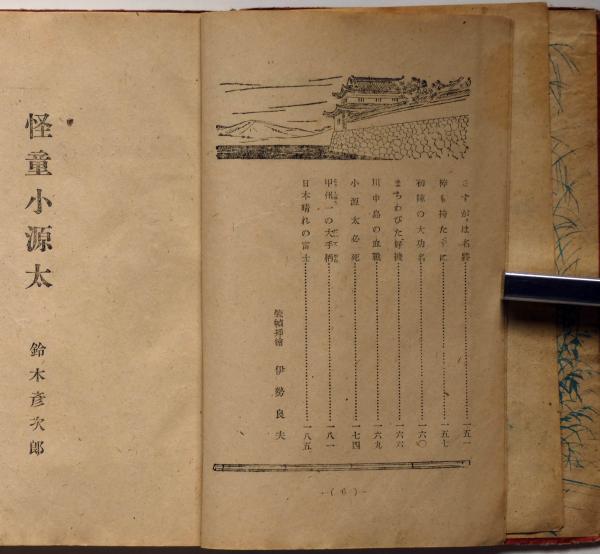 さすがは名將‥‥‥‥一五一
棒を持たずに‥‥‥‥一五七
初陣の大功名‥‥‥‥一六〇
まちわびた好機‥‥‥‥一六六
川中島の血戰‥‥‥‥一六九
小源太必死‥‥‥‥一七四
甲州一の大手柄‥‥‥‥一八一
日本晴れの富士‥‥‥‥一八五
裝幀挿繪 伊勢良夫
―(6)―
怪童小源太
鈴木彦次郎